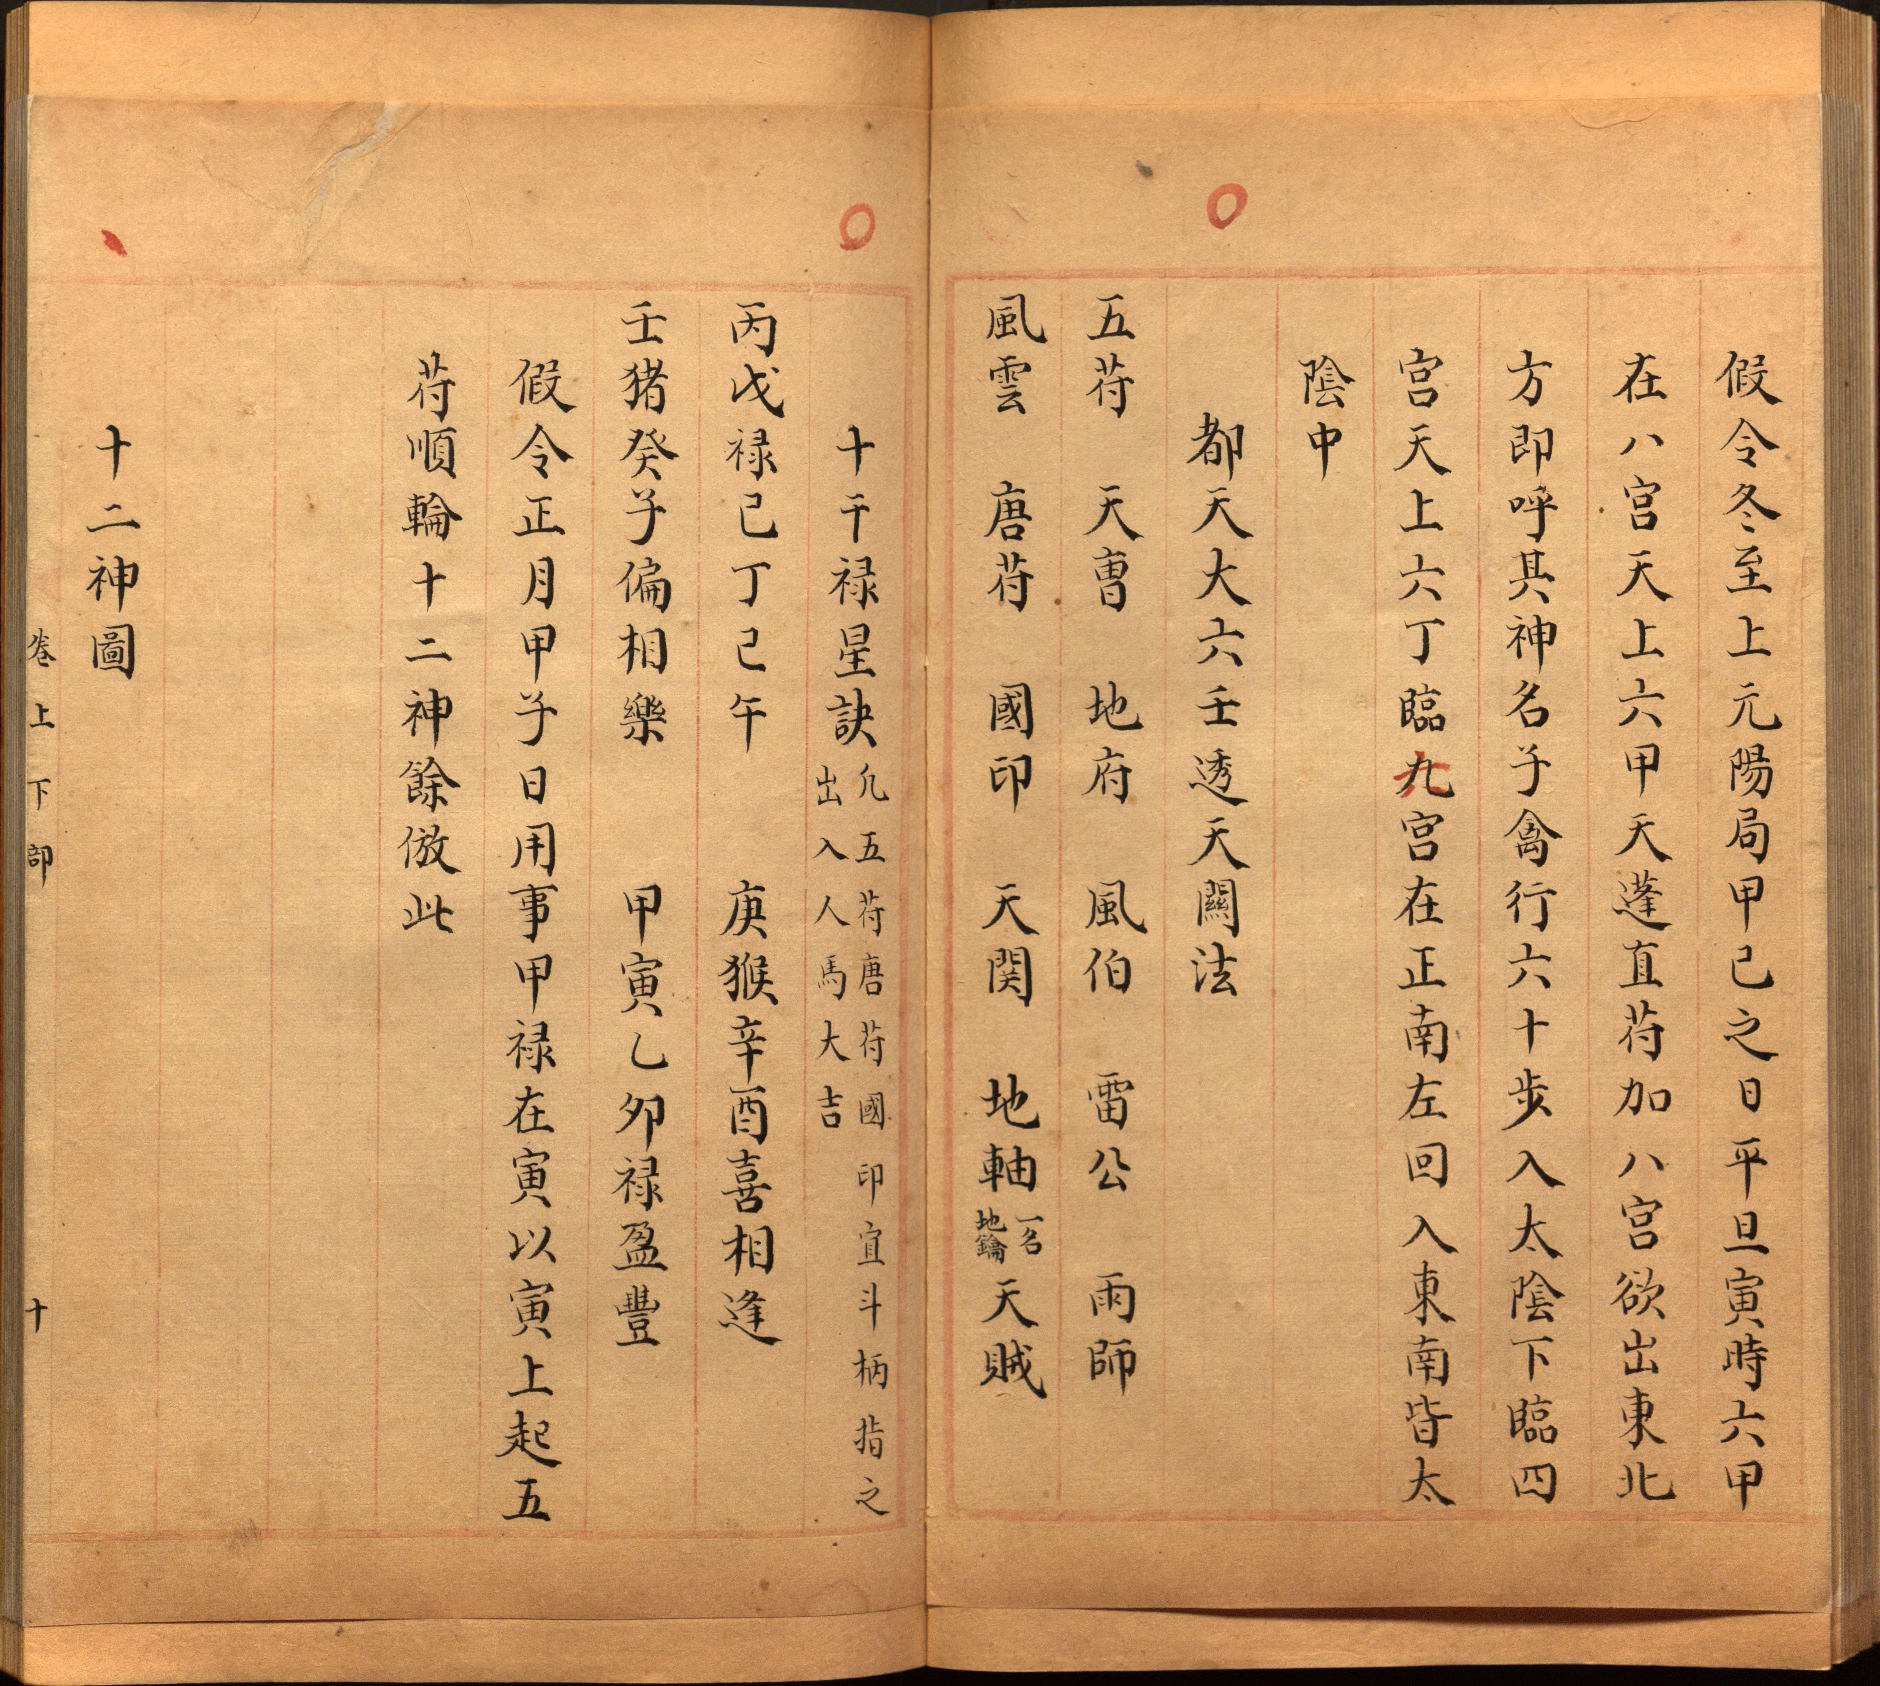 假令冬至上元陽局甲己之日平旦寅時六甲
在八宮天上六甲天蓬直苻加八宮欲出東北
方即呼其神名子禽行六十步入太陰下臨四
宮天上六丁臨九宮在正南左回入東南皆太
陰中
都天大六壬透天關法
五苻　天曹　地府　風伯　雷公　雨師
風雲　唐苻　國印　天関　地軸一名地鑰天賊
十干禄星訣凢五苻唐苻國印宜斗柄指之出入人馬大吉
丙戊禄己丁己午　庚猴辛酉喜相逢
壬猪癸子偏相樂　甲寅乙夘禄盈豐
假令正月甲子日用事甲禄在寅以寅上起五
苻順輪十二神餘倣此
十二神圖
卷上下部　十